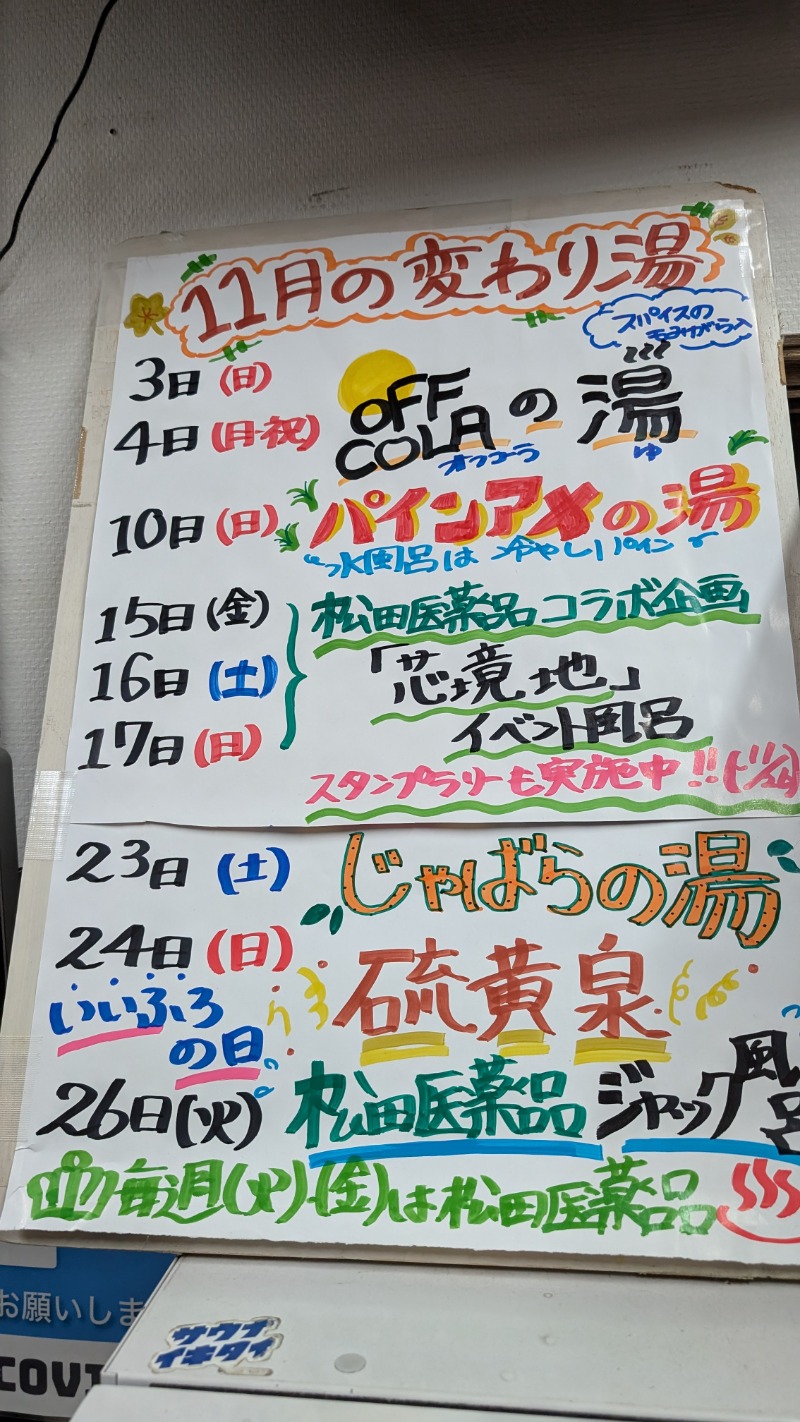 11月の変わり湯
スパイスの
もみがら入
3日(日)
4日(月・祝)
OFF
COLAの湯
オフコーラ
ゆ
10日(日)
パインアメの湯
水風呂は冷やしパイン
15日(金)
16日(土)
17日(日)
松田医薬品コラボ企画
「芯境地」
イベント風呂
スタンプラリーも実施中!!
23日(土)
じゃばらの湯
24日(日)
硫黄泉
いいふろ
の日
26日(火)
松田医薬品ジャック風呂
毎週(火)・(金)は松田医薬品
お願いしま
COVI
サウナ
イキタイ